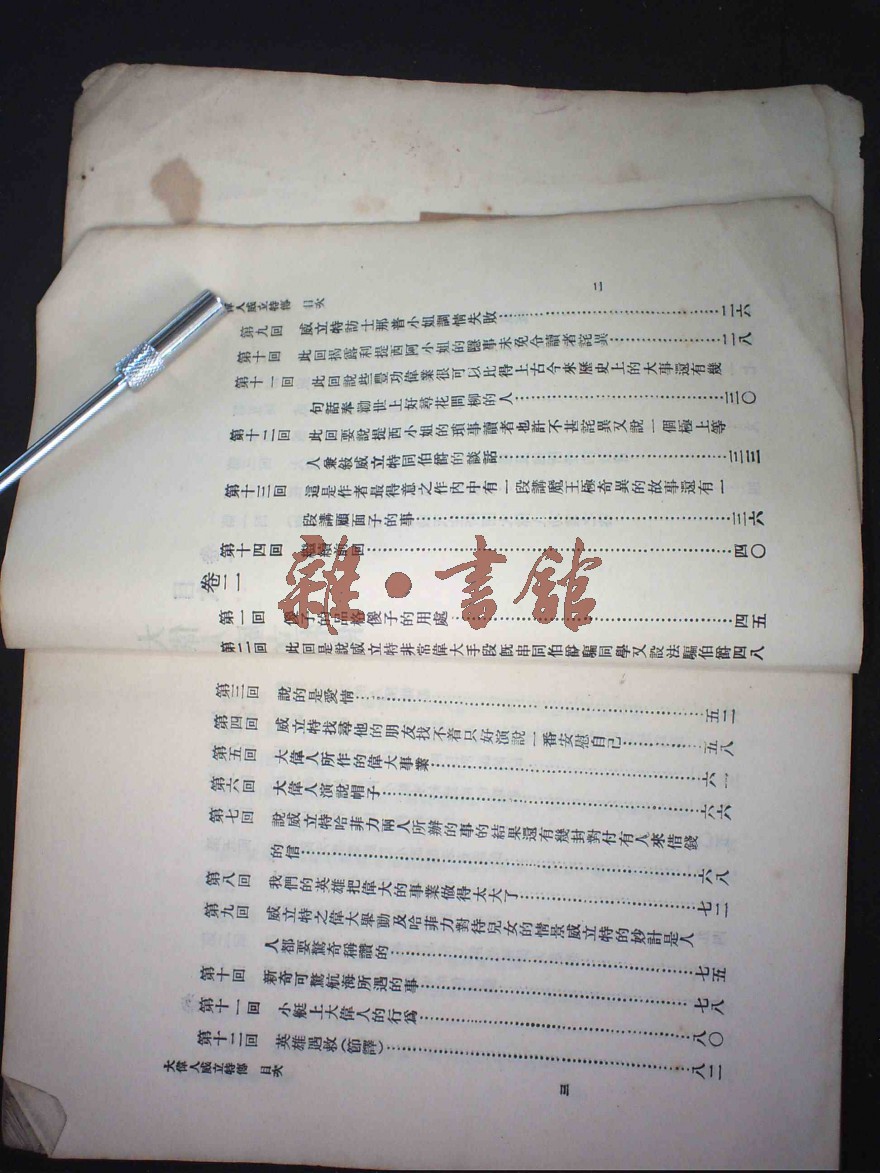 大偉人威立特傳 目次
二
第九回 威立特訪士那普小姐調情失敗……二六
第十回 此回揭露利提西阿小姐的醫事未免令讀者詫異……二八
第十一回 此回說些豐功偉業很可以比得上古今來歷史上的大事還有幾
句話奉勸世上好尋花問柳的人……三〇
第十二回 此回要說提西小姐的瑣事讀者也許不甚詫異又說一個極上等
人兼敍威立特同伯爵的談話……三三
第十三回 這是作者最得意之作內中有一段講魔王極奇異的故事還有一
段講顧面子的事……三六
第十四回 繼續前回……四〇
卷二
第一回 傻子的品格傻子的用處……四五
第二回 此回是說威立特非常偉大手段旣串同伯爵騙同學又設法騙伯爵四八
第三回 說的是愛情……五二
第四回 威立特找尋他的朋友找不着只好演說一番安慰自己……五八
第五回 大偉人所作的偉大事業……六一
第六回 大偉人演說帽子……六六
第七回 說威立特哈菲力兩人所辦的事的結果還有幾封對付有人來借錢
的信……六八
第八回 我們的英雄把偉大的事業做得太大了……七二
第九回 威立特之偉大舉動及哈菲力對待兒女的情景威立特的妙計是人
人都要驚奇稱讚的……七五
第十回 新奇可驚航海所遇的事……七八
第十一回 小艇上大偉人的行爲……八〇
第十二回 英雄遇救(節譯)……八二
大偉人威立特傳 目次
三
雜·書館